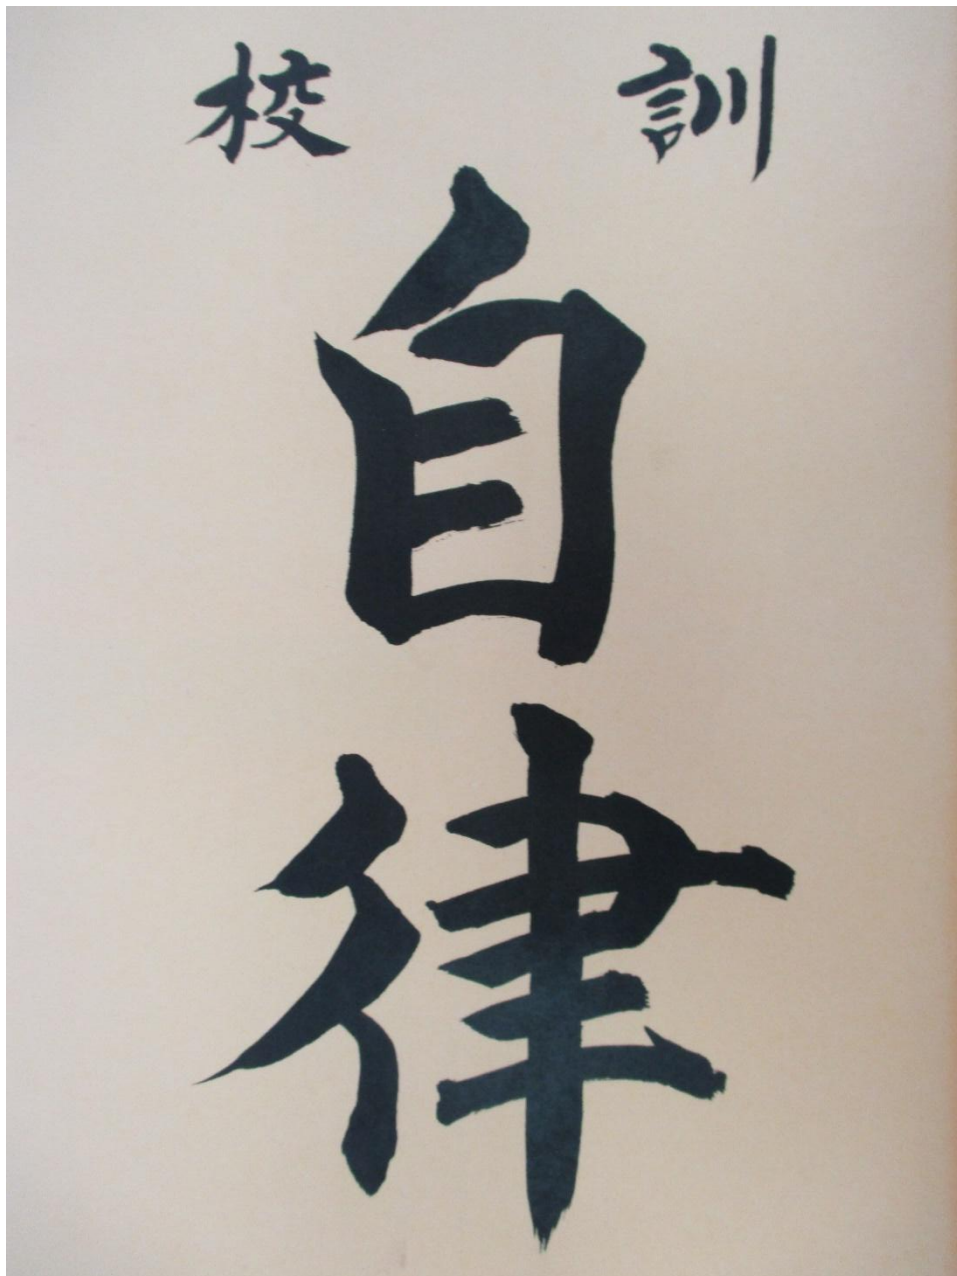 校訓
自律